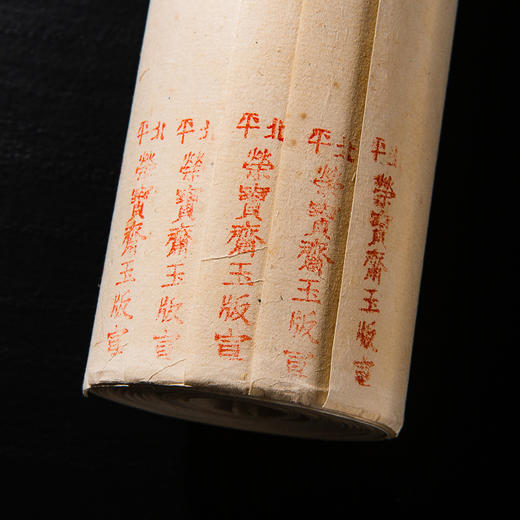 北平
榮寶齋玉版宣
北平
榮寶齋玉版宣
北平
榮寶齋玉版宣
北平
榮寶齋玉版宣
北平
榮寶齋玉版宣